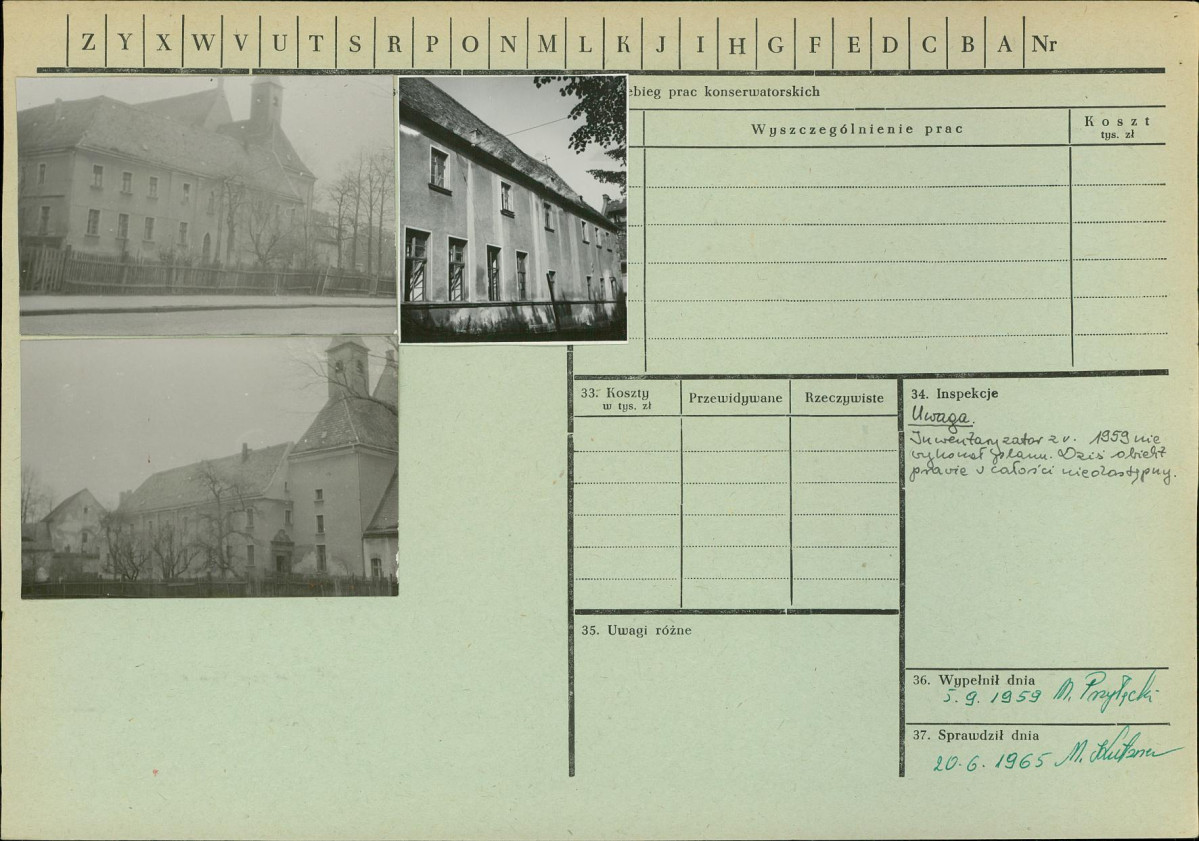 Z Y X W V U T S R P O N M L K J I H G F E D C B A Nr
ebieg prac konserwatorskich
Wyszczególnienie prac
Koszt
tys. zł
33. Koszty
w tys. zł
Przewidywane
Rzeczywiste
34. Inspekcje
Uwaga.
Inwentaryzator z r. 1959 nie
wykonał planu. Dziś obiekt
prawie w całości niedostępny.
35. Uwagi różne
36. Wypełnił dnia
5. 9. 1959 M. Przyłęcki
37. Sprawdził dnia
20. 6. 1965 M.